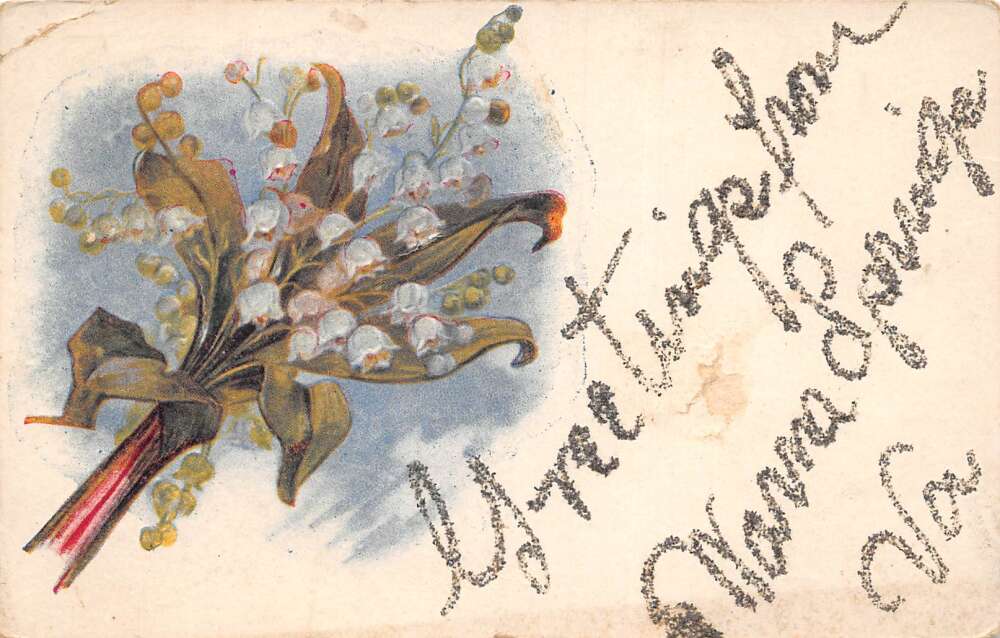 Greetings from
Warm Springs
Va